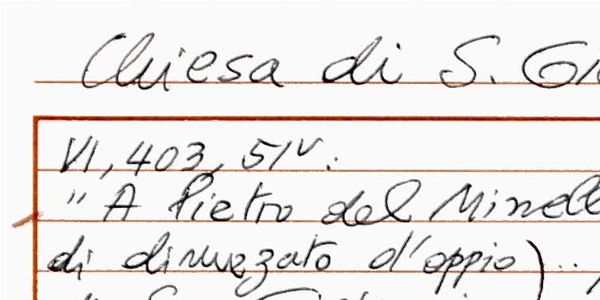 Chiesa di S.
VI, 403, 51v.
" A Pietro del
di dimezzato d'oppio)
" S.